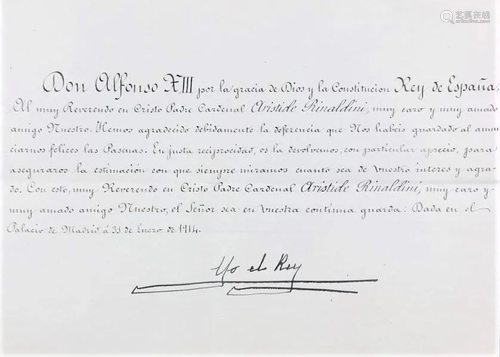 Don Alfonso XIII por la gracia de Dios y la Constitucion Rey de España.
Al muy Reverendo en Cristo Padre Cardenal Aristide Rinaldini, muy caro y muy amado
amigo Nuestro. Hemos agradecido debidamente la deferencia que Nos habéis guardado al anun
ciarnos felices las Pascuas. En justa reciprocidad, os la devolvemos, con particular aprecio, para
aseguraros la estimación con que siempre miramos cuanto sea de vuestro interes y agra-
do. Con esto, muy Reverendo en Cristo Padre Cardenal Aristide Rinaldini, muy caro y
muy amado amigo Nuestro, el Señor sea en Vuestra continua guarda: Dada en el
Palacio de Madrid á 31 de Enero de 1914.
Yo el Rey